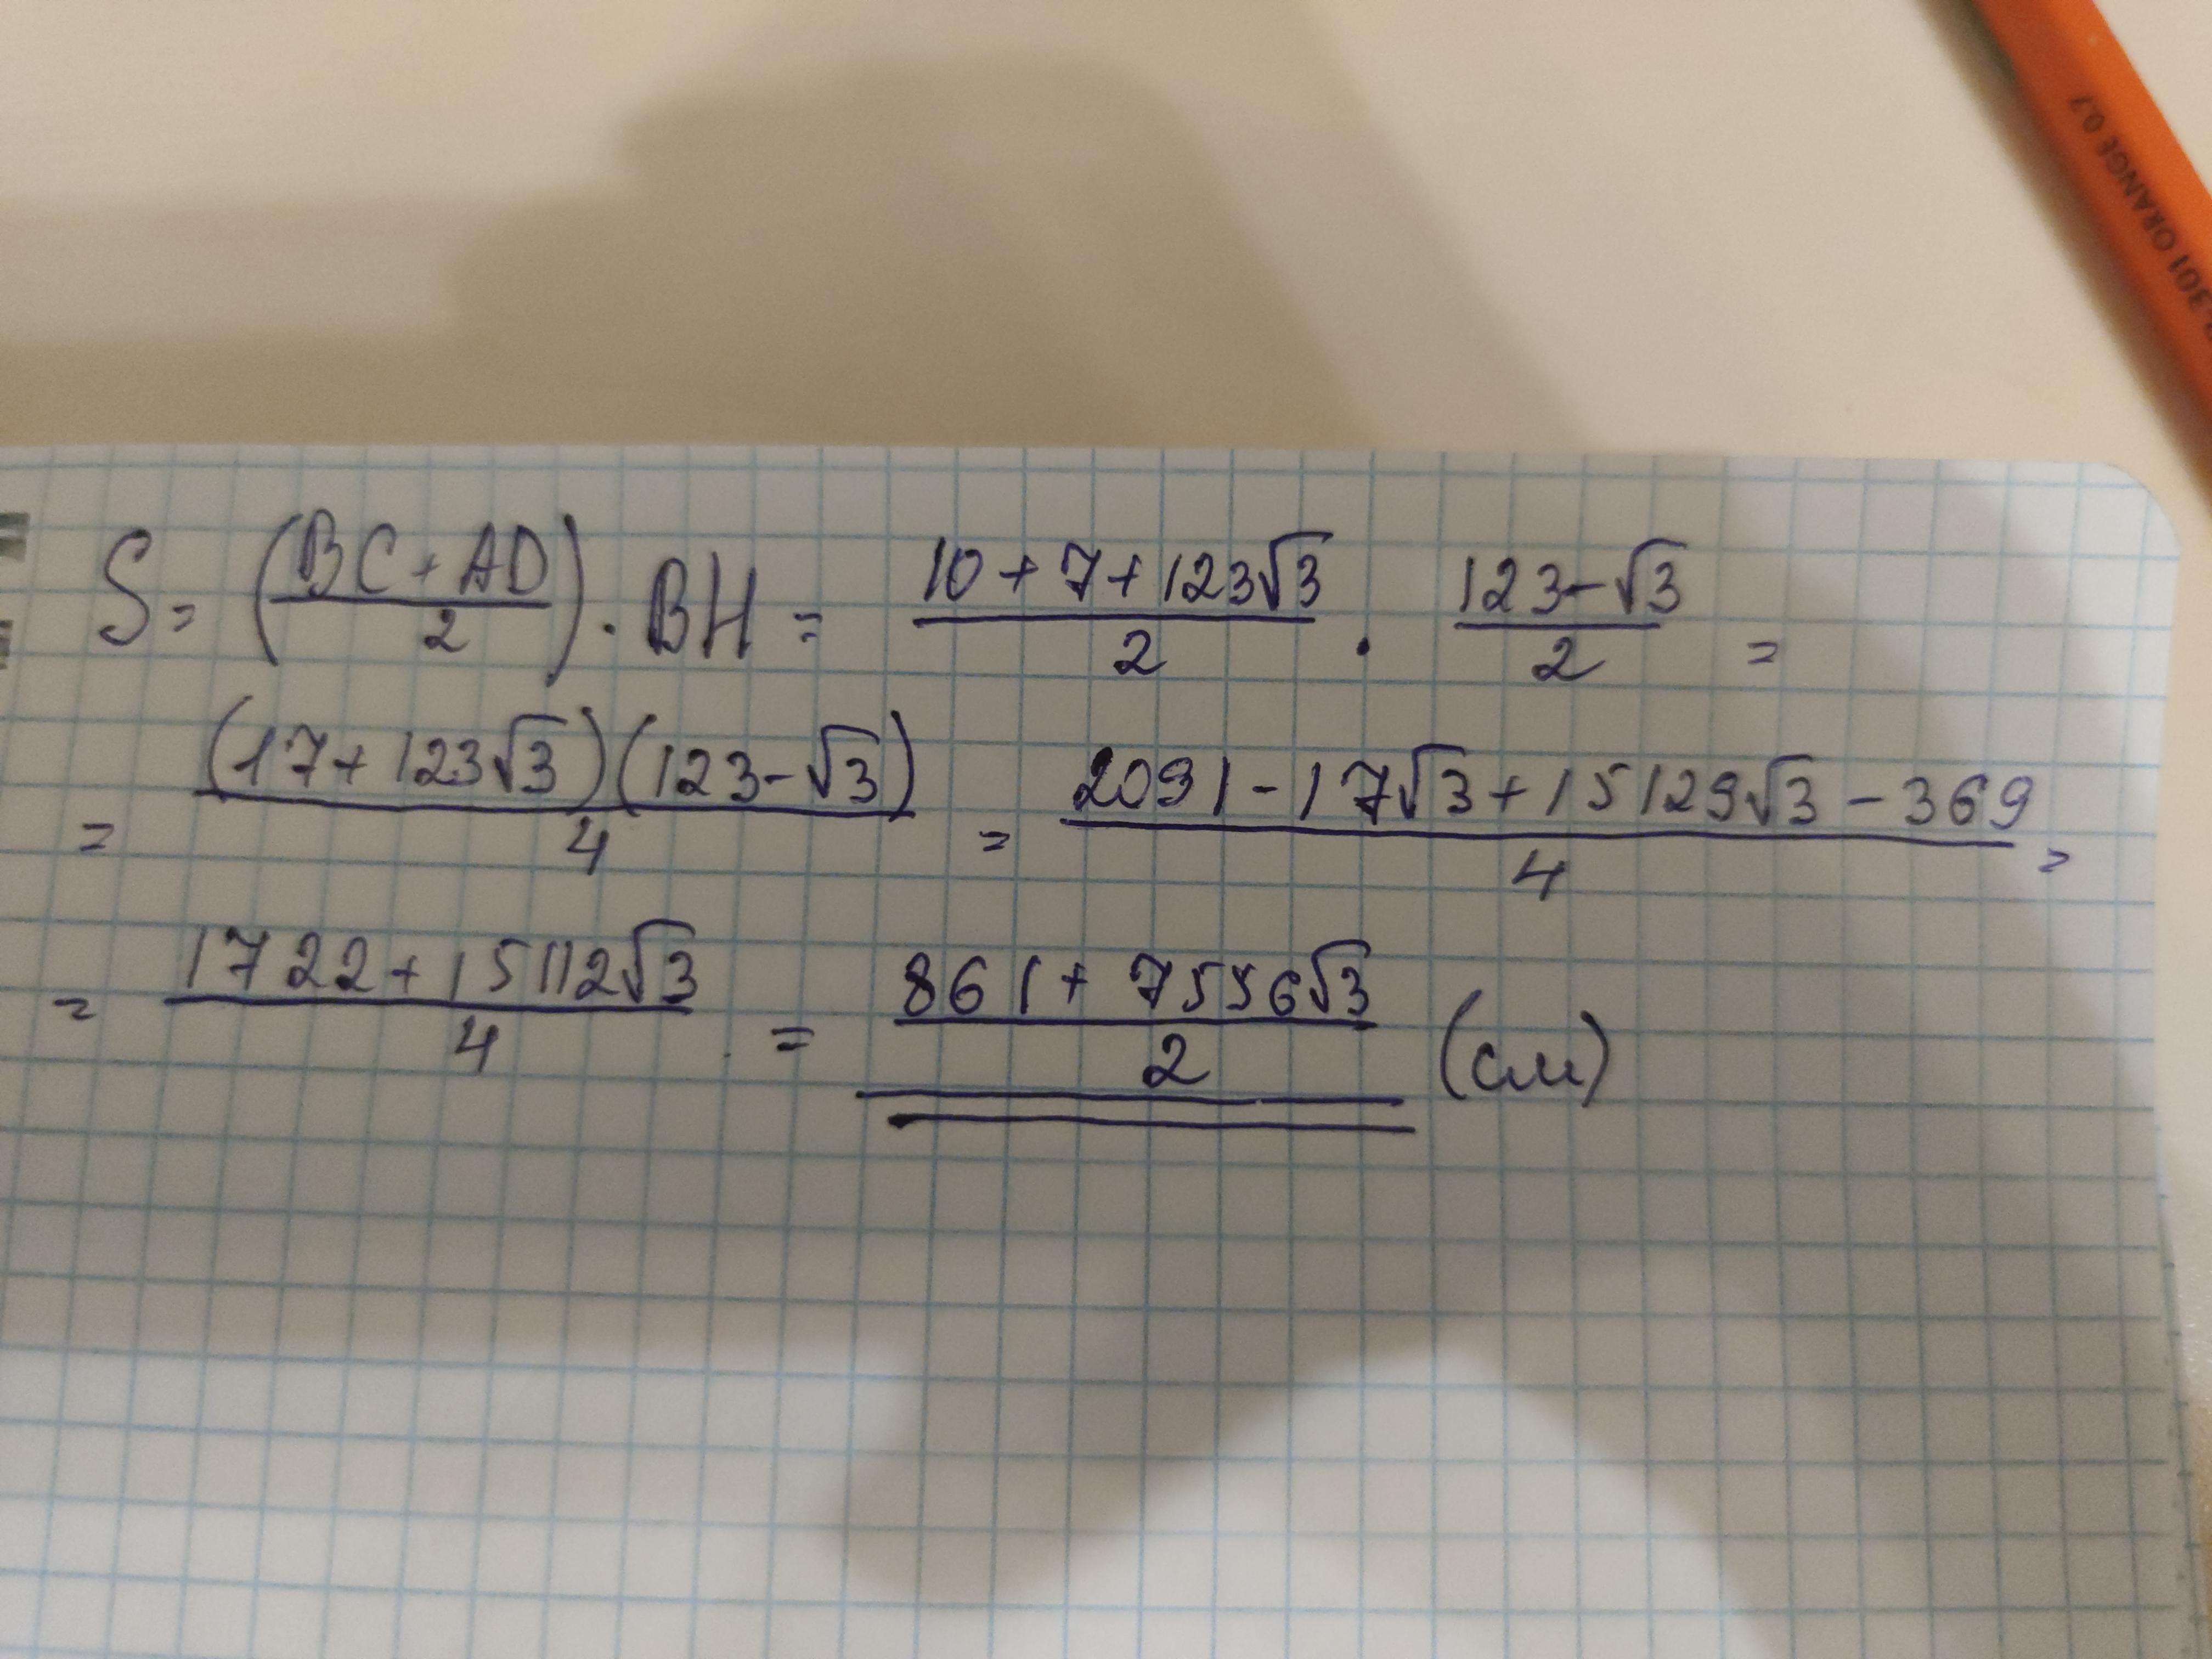 S = (BC + AD / 2) · BH = 10 + 7 + 123√3 / 2 · 123 - √3 / 2 =
= (17 + 123√3)(123 - √3) / 4 = 2091 - 17√3 + 15129√3 - 369 / 4 =
= 1722 + 15112√3 / 4 = 861 + 7556√3 / 2 (см)
301 ORANGE 0.7